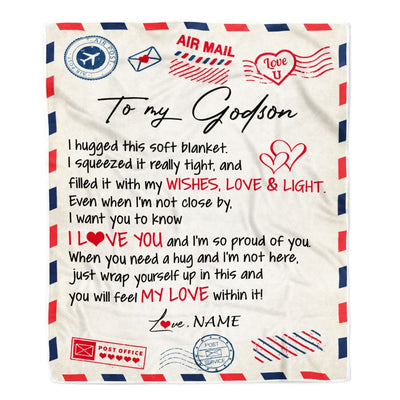 AIR POST
AIR MAIL
Love
U
To my Godson
I hugged this soft blanket.
I squeezed it really tight, and
filled it with my WISHES, LOVE & LIGHT.
Even when I'm not close by,
I want you to know
I L❤VE YOU and I'm so proud of you.
When you need a hug and I'm not here,
just wrap yourself up in this and
you will feel MY LOVE within it!
Love, NAME
POST OFFICE
POST
SERVICE